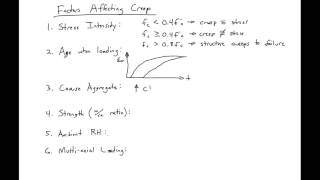 Factors Affecting Creep
1. Stress Intensity: fc < 0.4f'c → creep ∝ stress
fc ≥ 0.4f'c → creep ∝̸ stress
fc > 0.8f'c → structure creeps to failure
2. Age when loading:
t
3. Coarse Aggregate: ↑ C
4. Strength (w/c ratio):
5. Ambient RH:
6. Multi-axial Loading: